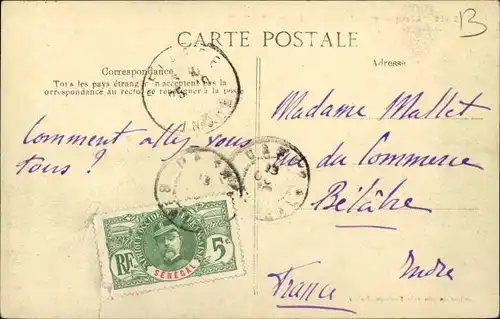 B
CARTE POSTALE
Correspondance
Adresse
Tous les pays étrangers n'acceptent pas la
correspondance au recto, se renseigner à la poste
Comment allez vous
tous ?
Madame Mallet
rue du Commerce
Bélâbre
Indre
France
RF
5c
SÉNÉGAL